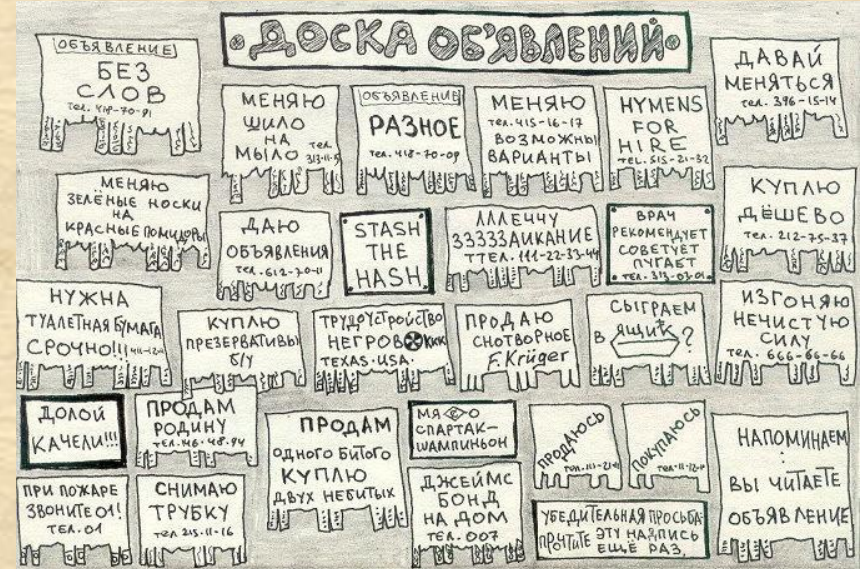 •ДОСКА ОБЪЯВЛЕНИЙ•
ОБЪЯВЛЕНИЕ
БЕЗ
СЛОВ
тел. 418-70-91
МЕНЯЮ
ШИЛО
НА
МЫЛО тел.
ОБЪЯВЛЕНИЕ
РАЗНОЕ
тел. 418-70-09
МЕНЯЮ
тел. 415-16-17
ВОЗМОЖНЫ
ВАРИАНТЫ
HYMENS
FOR
HIRE
TEL. 515-21-32
ДАВАЙ
МЕНЯТЬСЯ
тел. 396-15-14
МЕНЯЮ
ЗЕЛЁНЫЕ НОСКИ
НА
КРАСНЫЕ ПОМИДОРЫ
ДАЮ
ОБЪЯВЛЕНИЯ
тел. 612-70-11
STASH
THE
HASH
ЛЛЛЕЧЧУ
ЗЗЗЗЗАИКАНИЕ
ТТЕЛ. 111-22-33-44
ВРАЧ
РЕКОМЕНДУЕТ
СОВЕТУЕТ
ПУГАЕТ
ТЕЛ. 313-03-01
КУПЛЮ
ДЁШЕВО
тел. 212-75-37
НУЖНА
ТУАЛЕТНАЯ БУМАГА
СРОЧНО!!!
КУПЛЮ
ПРЕЗЕРВАТИВЫ
Б/У
ТРУДОУСТРОЙСТВО
НЕГРОВ ККК
TEXAS·USA·
ПРОДАЮ
СНОТВОРНОЕ
F. Krüger
СЫГРАЕМ
В ЯЩИК?
ИЗГОНЯЮ
НЕЧИСТУЮ
СИЛУ
тел. 666-66-66
ДОЛОЙ
КАЧЕЛИ!!!
ПРОДАМ
РОДИНУ
ТЕЛ. 146-48-94
ПРОДАМ
ОДНОГО БИТОГО
КУПЛЮ
ДВУХ НЕБИТЫХ
МЯСО
СПАРТАК–
ШАМПИНЬОН
ПРОДАЮСЬ
ПОКУПАЮСЬ
НАПОМИНАЕМ
:
ВЫ ЧИТАЕТЕ
ОБЪЯВЛЕНИЕ
ПРИ ПОЖАРЕ
ЗВОНИТЕ 01!
ТЕЛ. 01
СНИМАЮ
ТРУБКУ
тел 215-11-16
ДЖЕЙМС
БОНД
НА ДОМ
ТЕЛ. 007
УБЕДИТЕЛЬНАЯ ПРОСЬБА:
ПРОЧТИТЕ ЭТУ НАДПИСЬ
ЕЩЁ РАЗ.